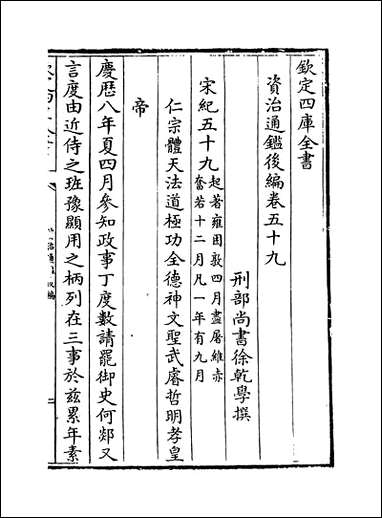 欽定四庫全書
資治通鑑後編卷五十九
刑部尚書徐乾學撰
宋紀五十九起著雍困敦四月盡屠維赤
奮若十二月凡一年有九月
仁宗體天法道極功全德神文聖武睿哲明孝皇
帝
慶歷八年夏四月參知政事丁度數請罷御史何郯又
言度由近侍之班豫顯用之柄列在三事於兹累年素